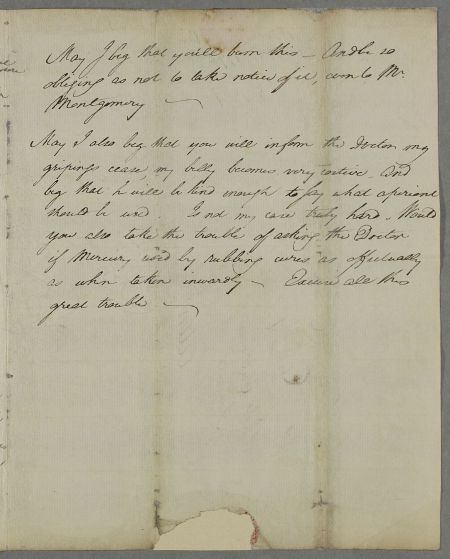 May I beg that you'll burn this – And be so
obliging as not to take notice of it, even to Mr.
Montgomery —
May I also beg that you will inform the Doctor my
gripings cease, my belly becomes very costive. And
beg that he will be kind enough to say what aperient
should be used. Is not my case truly hard. Would
you also take the trouble of asking the Doctor
if Mercury used by rubbing cures as effectually
as when taken inwardly – Excuse all this
great trouble —